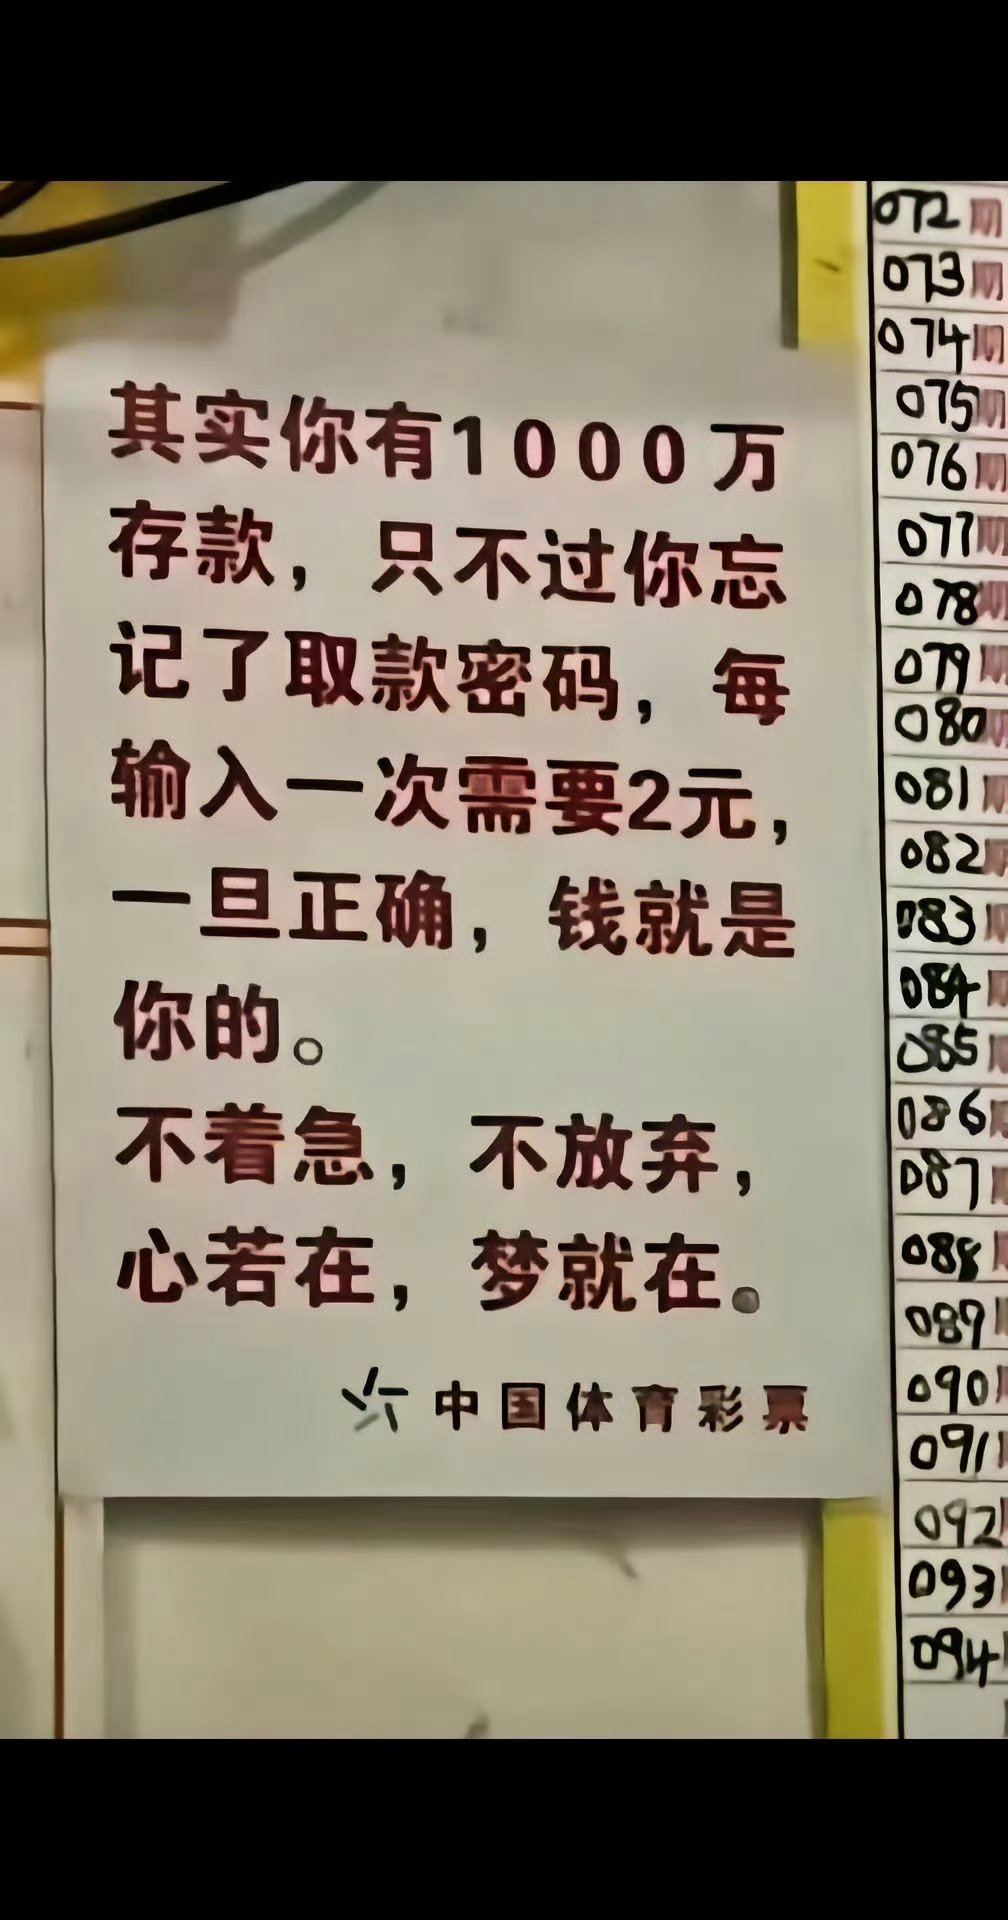 其实你有1000万
存款，只不过你忘
记了取款密码，每
输入一次需要2元，
一旦正确，钱就是
你的。
不着急，不放弃，
心若在，梦就在。
中国体育彩票
072期
073期
074期
075期
076期
077期
078期
079期
080期
081期
082期
083期
084期
085期
086期
087期
088期
089期
090期
091
092
093
094